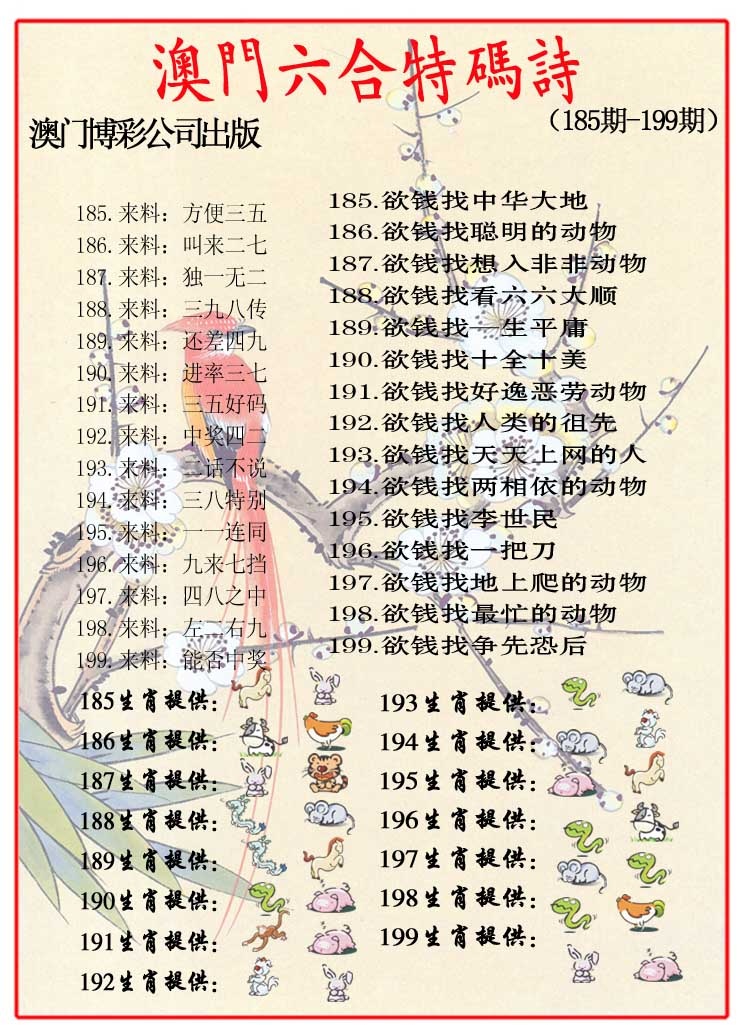 澳門六合特碼詩
澳门博彩公司出版
（185期-199期）
185.来料：方便三五
186.来料：叫来二七
187.来料：独一无二
188.来料：三九八传
189.来料：还差四九
190.来料：进率三七
191.来料：三五好码
192.来料：中奖四二
193.来料：二话不说
194.来料：三八特别
195.来料：一一连同
196.来料：九来七挡
197.来料：四八之中
198.来料：左二右九
199.来料：能否中奖
185.欲钱找中华大地
186.欲钱找聪明的动物
187.欲钱找想入非非动物
188.欲钱找看六六大顺
189.欲钱找一生平庸
190.欲钱找十全十美
191.欲钱找好逸恶劳动物
192.欲钱找人类的祖先
193.欲钱找天天上网的人
194.欲钱找两相依的动物
195.欲钱找李世民
196.欲钱找一把刀
197.欲钱找地上爬的动物
198.欲钱找最忙的动物
199.欲钱找争先恐后
185生肖提供：
186生肖提供：
187生肖提供：
188生肖提供：
189生肖提供：
190生肖提供：
191生肖提供：
192生肖提供：
193生肖提供：
194生肖提供：
195生肖提供：
196生肖提供：
197生肖提供：
198生肖提供：
199生肖提供：